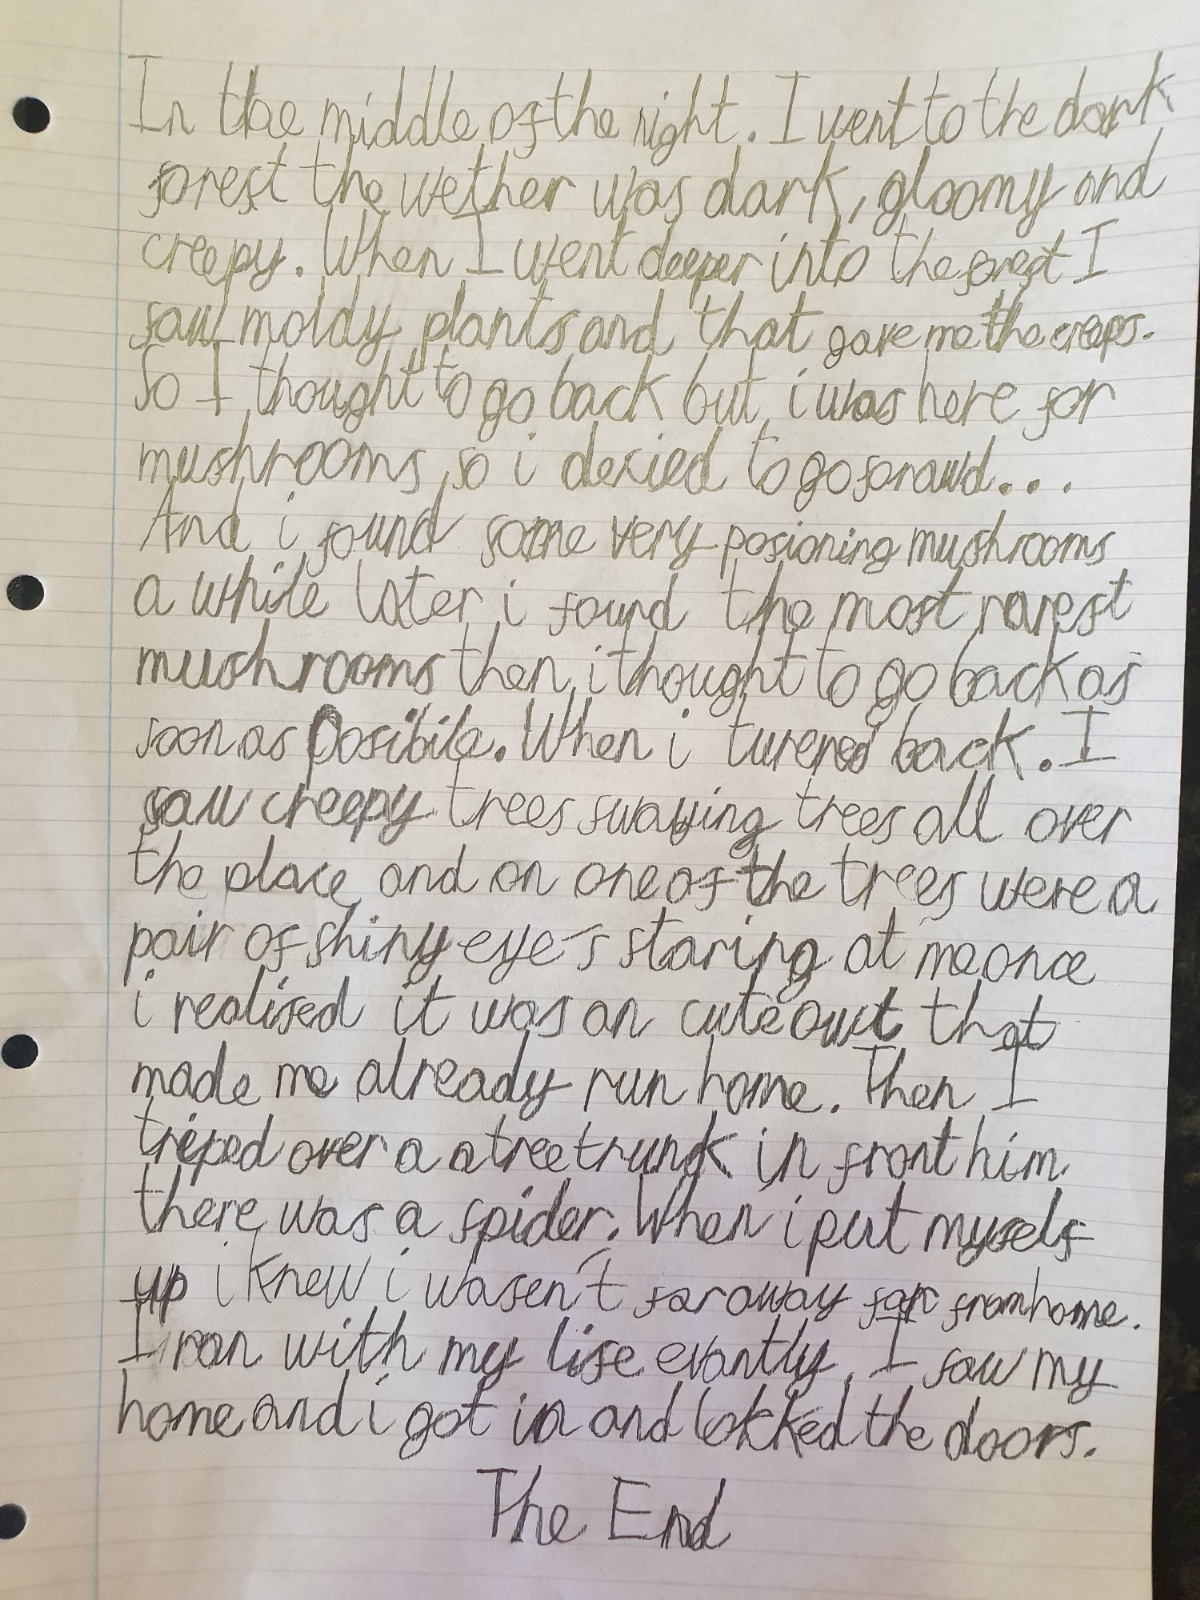 In the middle of the night. I went to the dark
forest the wether was dark, gloomy and
creepy. When I went deeper into the forest I
saw moldy plants and that gave me the creeps.
So I thought to go back but i was here for
mushrooms so i decied to go forawd...
And i found some very posioning mushrooms
a while later i found the most rarest
mushrooms then i thought to go back as
soon as Posibile. When i turened back. I
saw creepy trees swaying trees all over
the place and on one of the trees were a
pair of shiny eye's staring at me once
i realised it was an cute owl that
made me already run home. Then I
triped over a a tree trunk in front him
there was a spider. When i put myself
up i knew i wasen't far away far from home.
I ran with my life evantly I saw my
home and i got in and lokked the doors.
The End